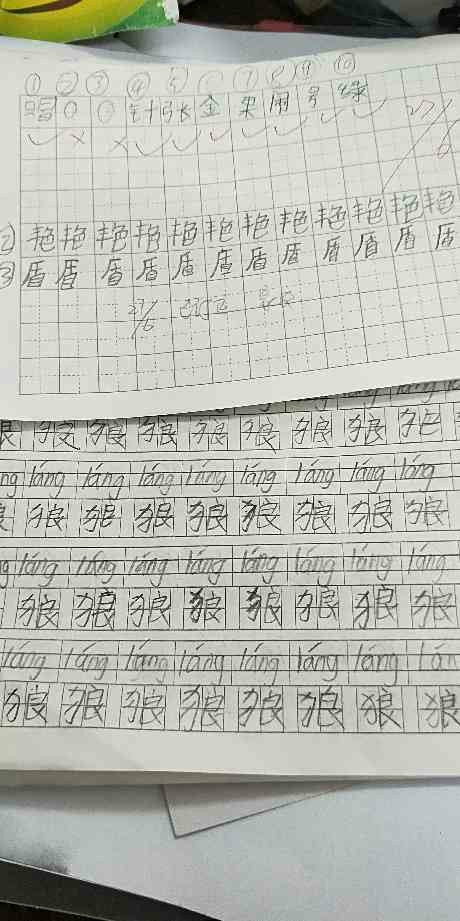 ① ② ③ ④ ⑤ ⑥ ⑦ ⑧ ⑨ ⑩
唱 〇 〇 针 张 金 果 用 号 绿
27/6
② 艳 艳 艳 艳 艳 艳 艳 艳 艳 艳 艳 艳
③ 盾 盾 盾 盾 盾 盾 盾 盾 盾 盾 盾 盾
27/6
狼 狼 狼 狼 狼 狼 狼 狼 狼
ng láng láng láng láng láng láng láng láng
狼 狼 狼 狼 狼 狼 狼 狼 狼
g láng láng láng láng láng láng láng láng
狼 狼 狼 狼 狼 狼 狼 狼
láng láng láng láng láng láng láng lán
狼 狼 狼 狼 狼 狼 狼 狼